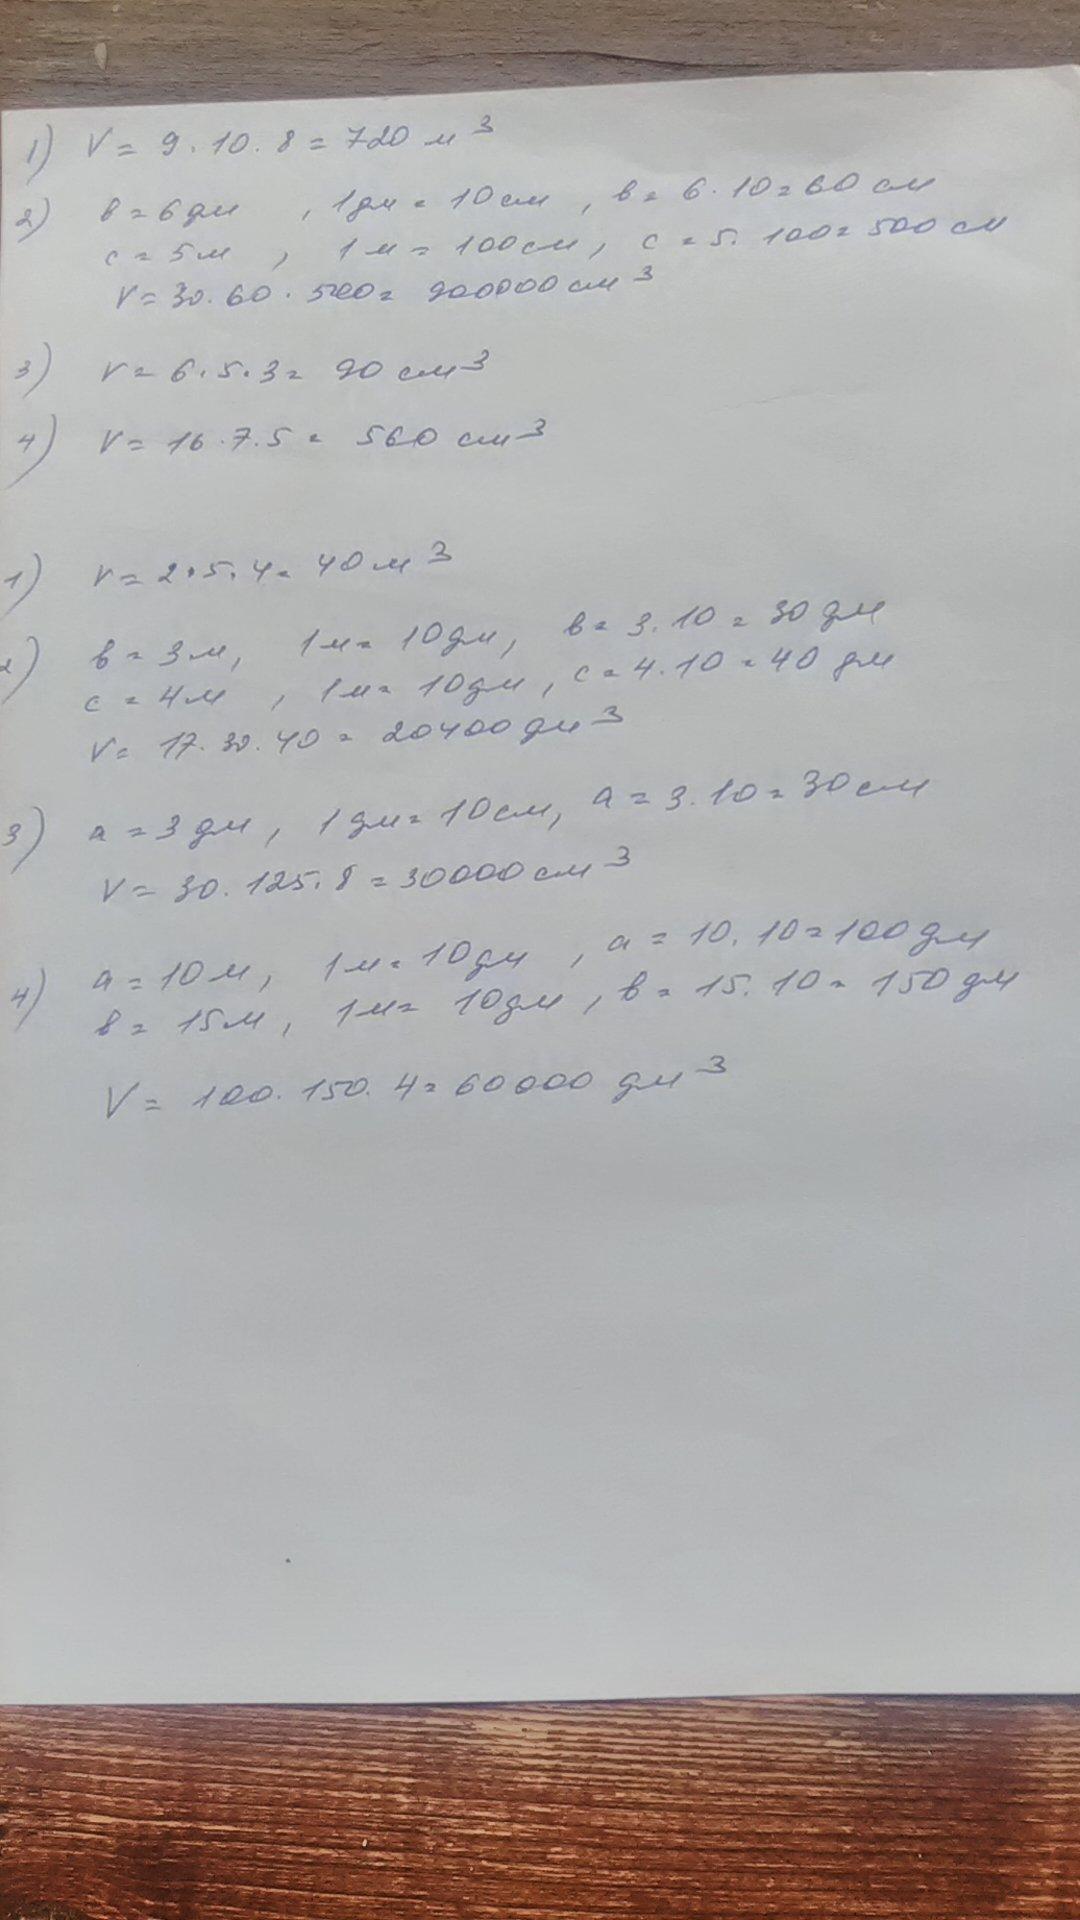 1) V = 9 · 10 · 8 = 720 м³
2) в = 6 дм , 1 дм = 10 см , в = 6 · 10 = 60 см
с = 5 м , 1 м = 100 см , с = 5 · 100 = 500 см
V = 30 · 60 · 500 = 900000 см³
3) V = 6 · 5 · 3 = 90 см³
4) V = 16 · 7 · 5 = 560 см³
1) V = 2 · 5 · 4 = 40 м³
2) в = 3 м , 1 м = 10 дм , в = 3 · 10 = 30 дм
с = 4 м , 1 м = 10 дм , с = 4 · 10 = 40 дм
V = 17 · 30 · 40 = 20400 дм³
3) а = 3 дм , 1 дм = 10 см , а = 3 · 10 = 30 см
V = 30 · 125 · 8 = 30000 см³
4) а = 10 м , 1 м = 10 дм , а = 10 · 10 = 100 дм
в = 15 м , 1 м = 10 дм , в = 15 · 10 = 150 дм
V = 100 · 150 · 4 = 60000 дм³